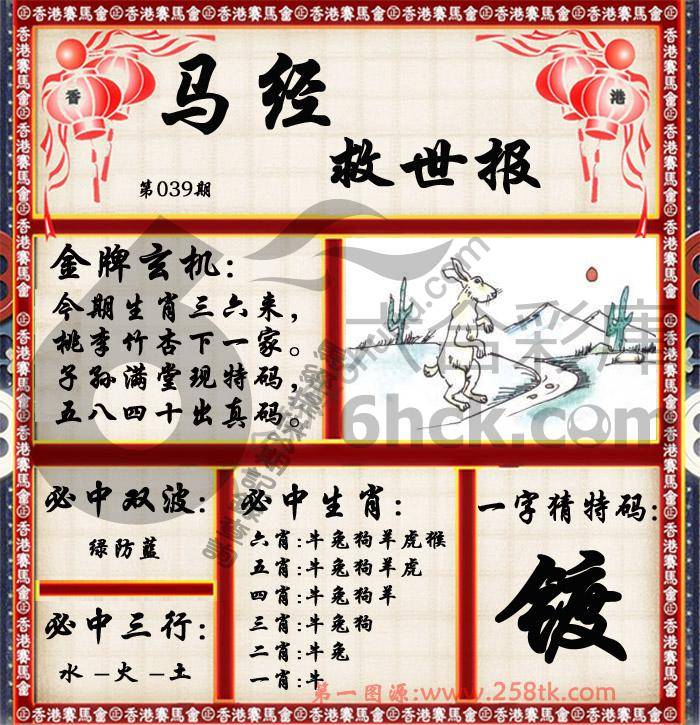 香港賽馬會
香 港
马经
救世报
第039期
金牌玄机:
今期生肖三六来，
桃李竹杏下一家。
子孙满堂现特码，
五八四十出真码。
六合彩库
6hck.com
必中双波:
绿防蓝
必中三行:
水–火–土
必中生肖:
六肖:牛兔狗羊虎猴
五肖:牛兔狗羊虎
四肖:牛兔狗羊
三肖:牛兔狗
二肖:牛兔
一肖:牛
一字猜特码:
镀
第一图源:www.258tk.com